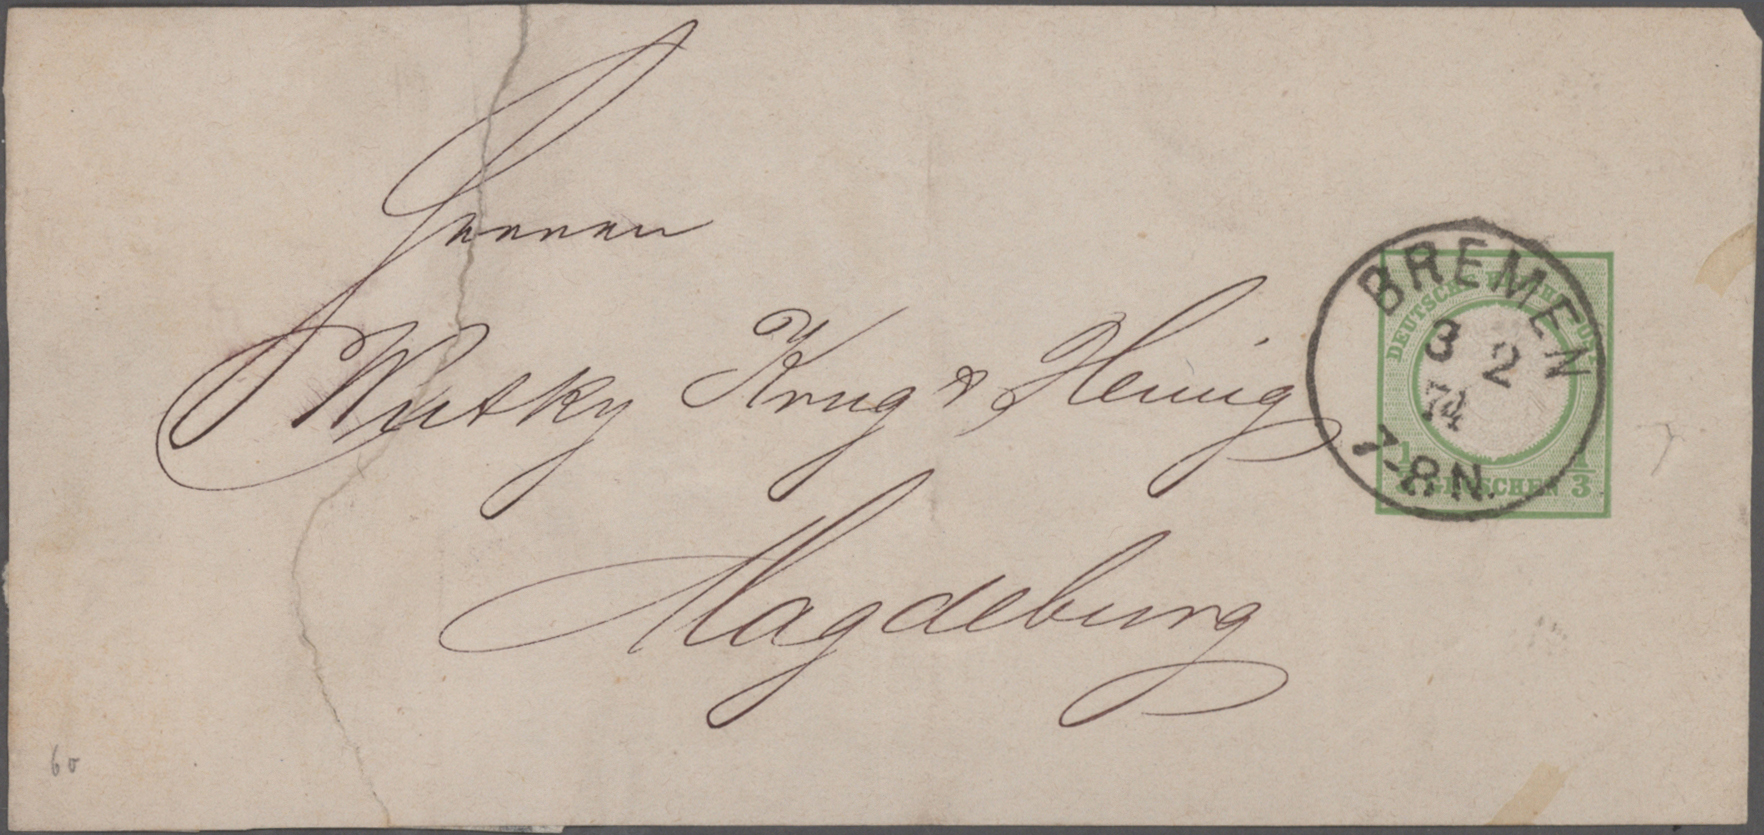 Herren
Wutky Krug & Hennig
Magdeburg
BREMEN
3 2
74
7-8 N.
DEUTSCHE REICHSPOST
1/3 GROSCHEN 1/3
60